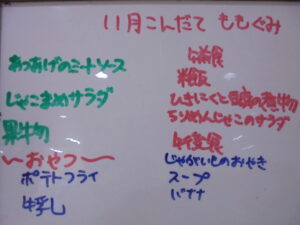 11月こんだて ももぐみ
あつあげのミートソース
じゃこまめサラダ
果物
〜おやつ〜
ポテトフライ
牛乳
米飯
ひきにくと豆腐の煮物
ちりめんじゃこのサラダ
じゃがいものおやき
スープ
バナナ